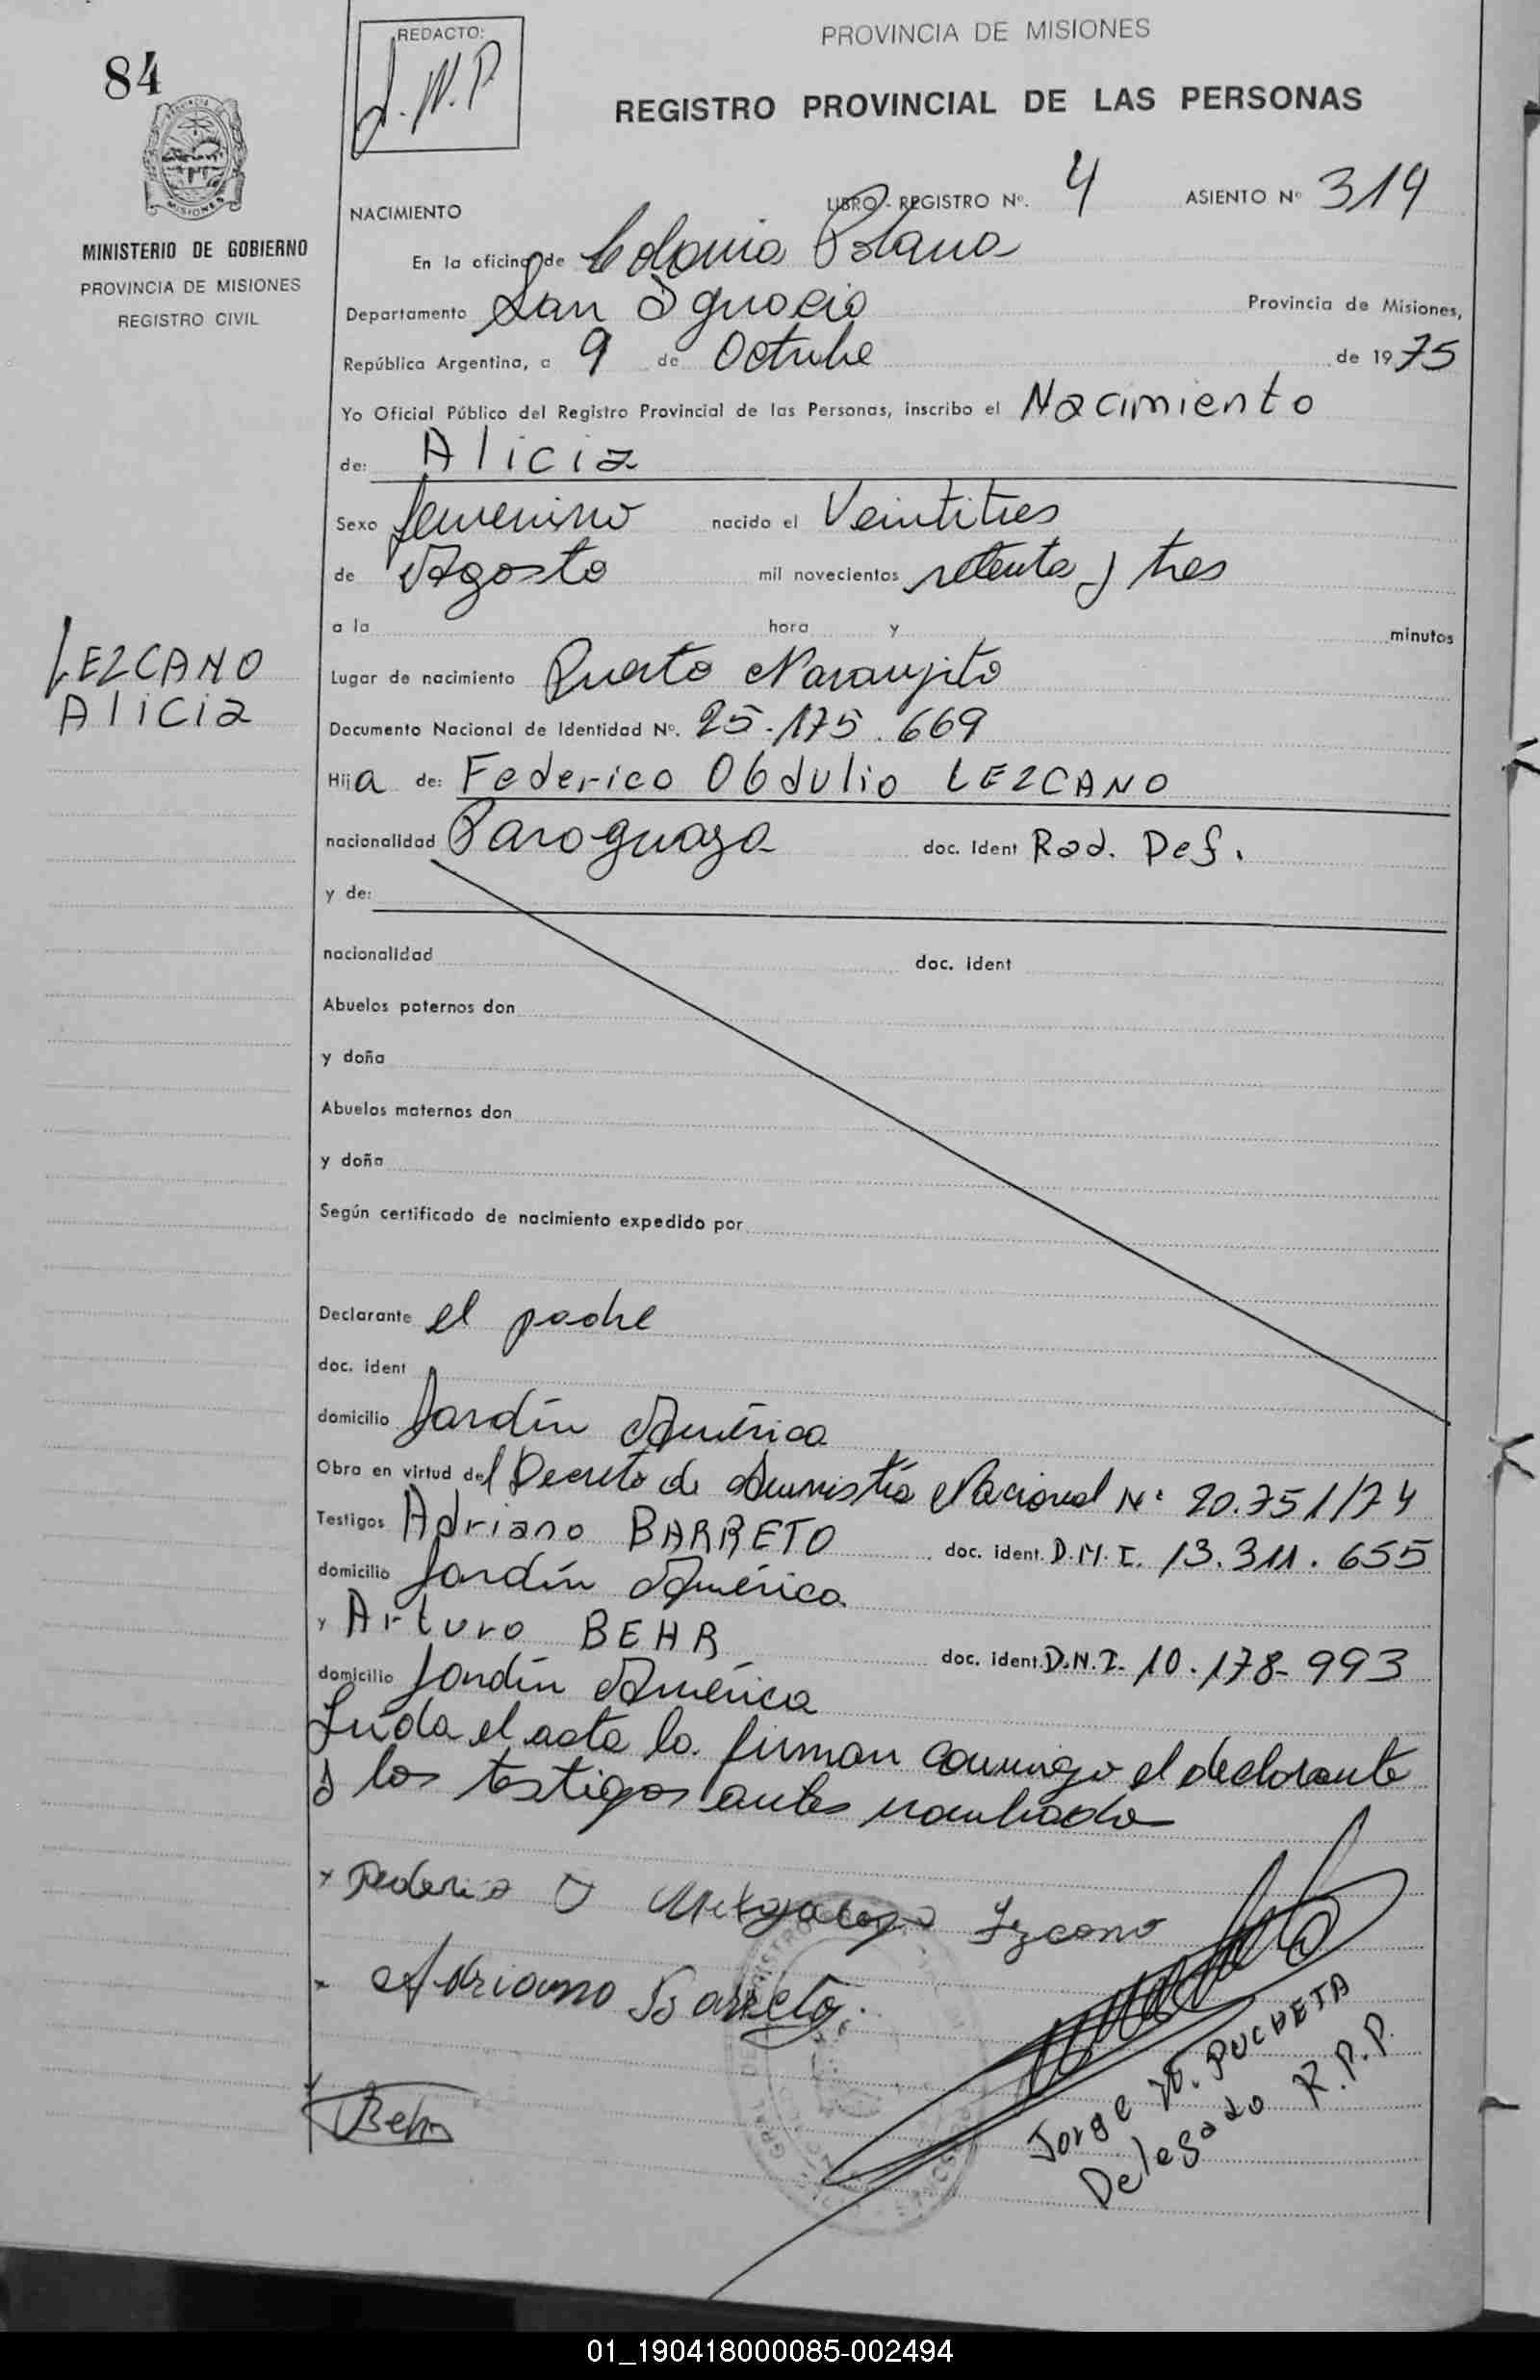 84
REDACTO:
J.N.P.
PROVINCIA DE MISIONES
REGISTRO PROVINCIAL DE LAS PERSONAS
MISIONES
MINISTERIO DE GOBIERNO
PROVINCIA DE MISIONES
REGISTRO CIVIL
NACIMIENTO
LIBRO - REGISTRO Nº. 4 ASIENTO Nº 319
En la oficina de Colonia Polana
Departamento San Ignacio Provincia de Misiones,
República Argentina, a 9 de Octubre de 1975
Yo Oficial Público del Registro Provincial de las Personas, inscribo el Nacimiento
de: Alicia
Sexo femenino nacido el Veintitres
de Agosto mil novecientos setenta y tres
a la hora y minutos
LEZCANO
Alicia
Lugar de nacimiento Puerto Naranjito
Documento Nacional de Identidad Nº. 25.175.669
Hija de: Federico Obdulio LEZCANO
nacionalidad Paraguaya doc. Ident Rad. Def.
y de:
nacionalidad doc. ident
Abuelos paternos don
y doña
Abuelos maternos don
y doña
Según certificado de nacimiento expedido por
Declarante el padre
doc. ident
domicilio Jardín América
Obra en virtud del Decreto de Amnistía Nacional Nº 20.751/74
Testigos Adriano BARRETO doc. ident. D.N.I. 13.311.655
domicilio Jardín América
y Arturo BEHR doc. ident. D.N.I. 10.178-993
domicilio Jardín América
Leída el acta la firman conmigo el declarante
y los testigos antes nombrados
x Federico O Lezcano
x Adriano Barreto.
x Behr
Jorge N. PUCHETA
Delegado R.P.P.
01_190418000085-002494